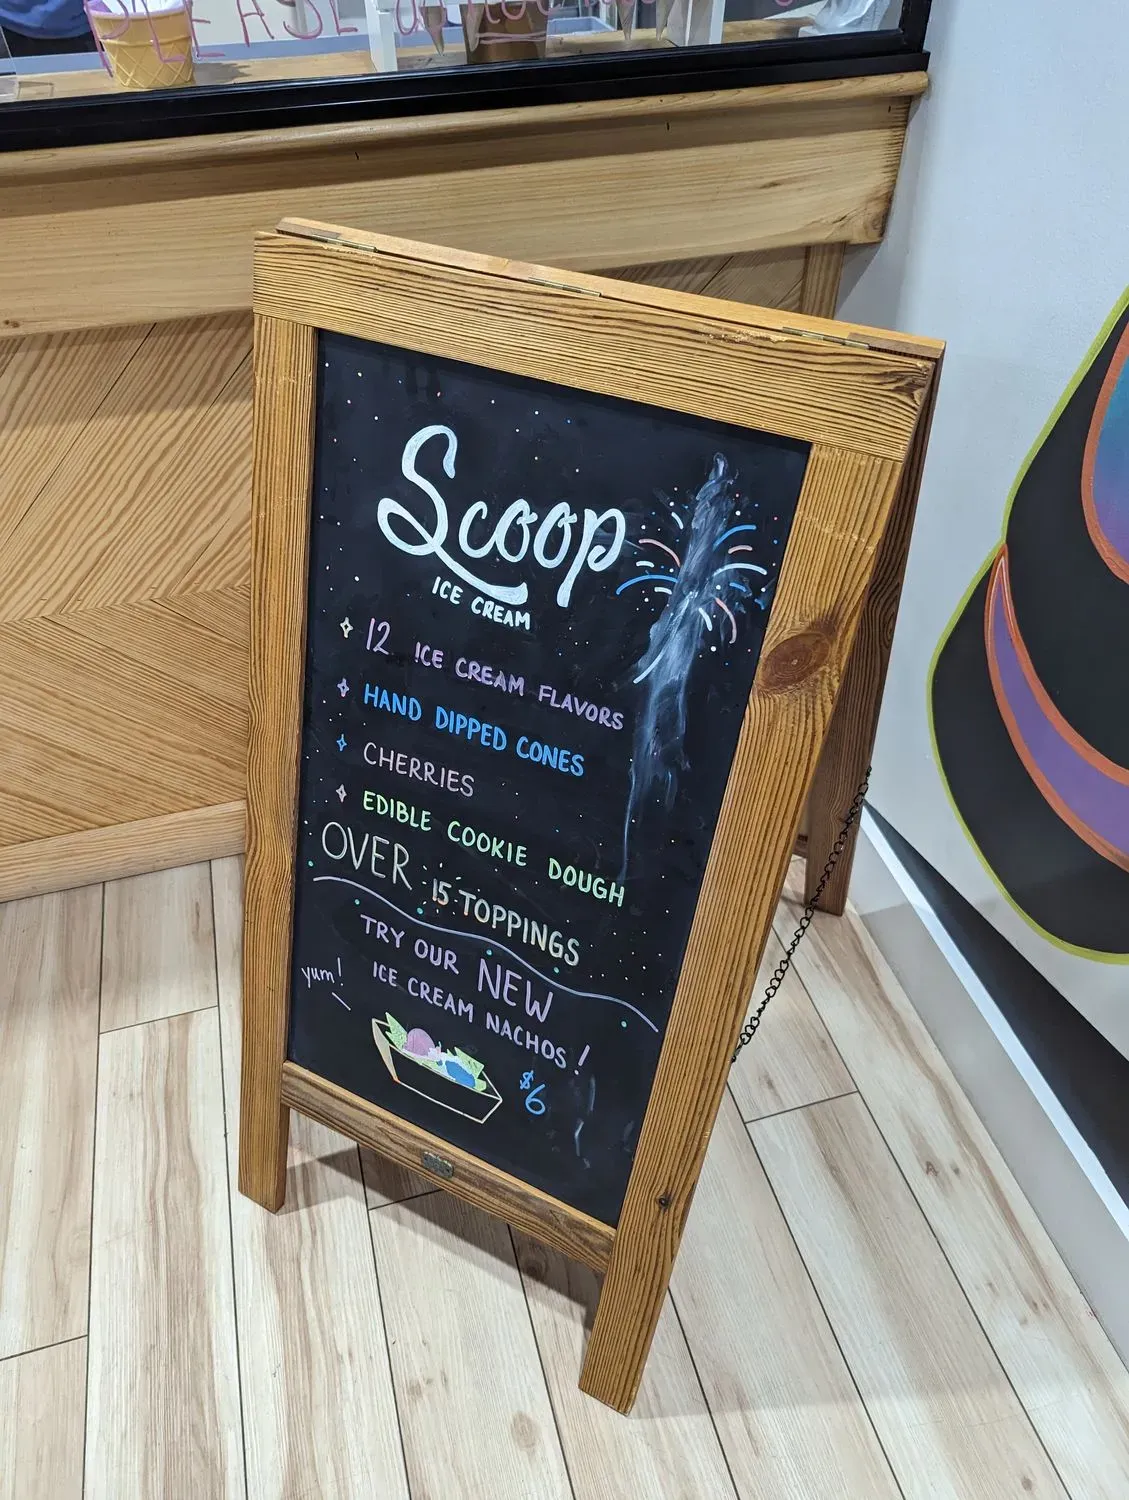 PLEASE do NOT
Scoop
ICE CREAM
12 ICE CREAM FLAVORS
HAND DIPPED CONES
CHERRIES
EDIBLE COOKIE DOUGH
OVER 15 TOPPINGS
TRY OUR NEW
ICE CREAM NACHOS!
yum!
$6